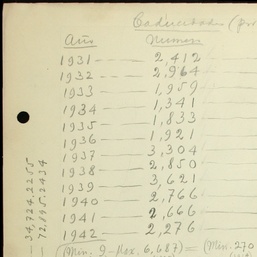 Caducidades (pro
Año Número
1931 — 2,412
1932 — 2,964
1933 — 1,959
1934 — 1,341
1935 — 1,833
1936 — 1,921
1937 — 3,304
1938 — 2,850
1939 — 3,621
1940 — 2,766
1941 — 2,666
1942 — 2,276
(Min. 9 - Max. 6,687) = (Min. 270
34,724,2255